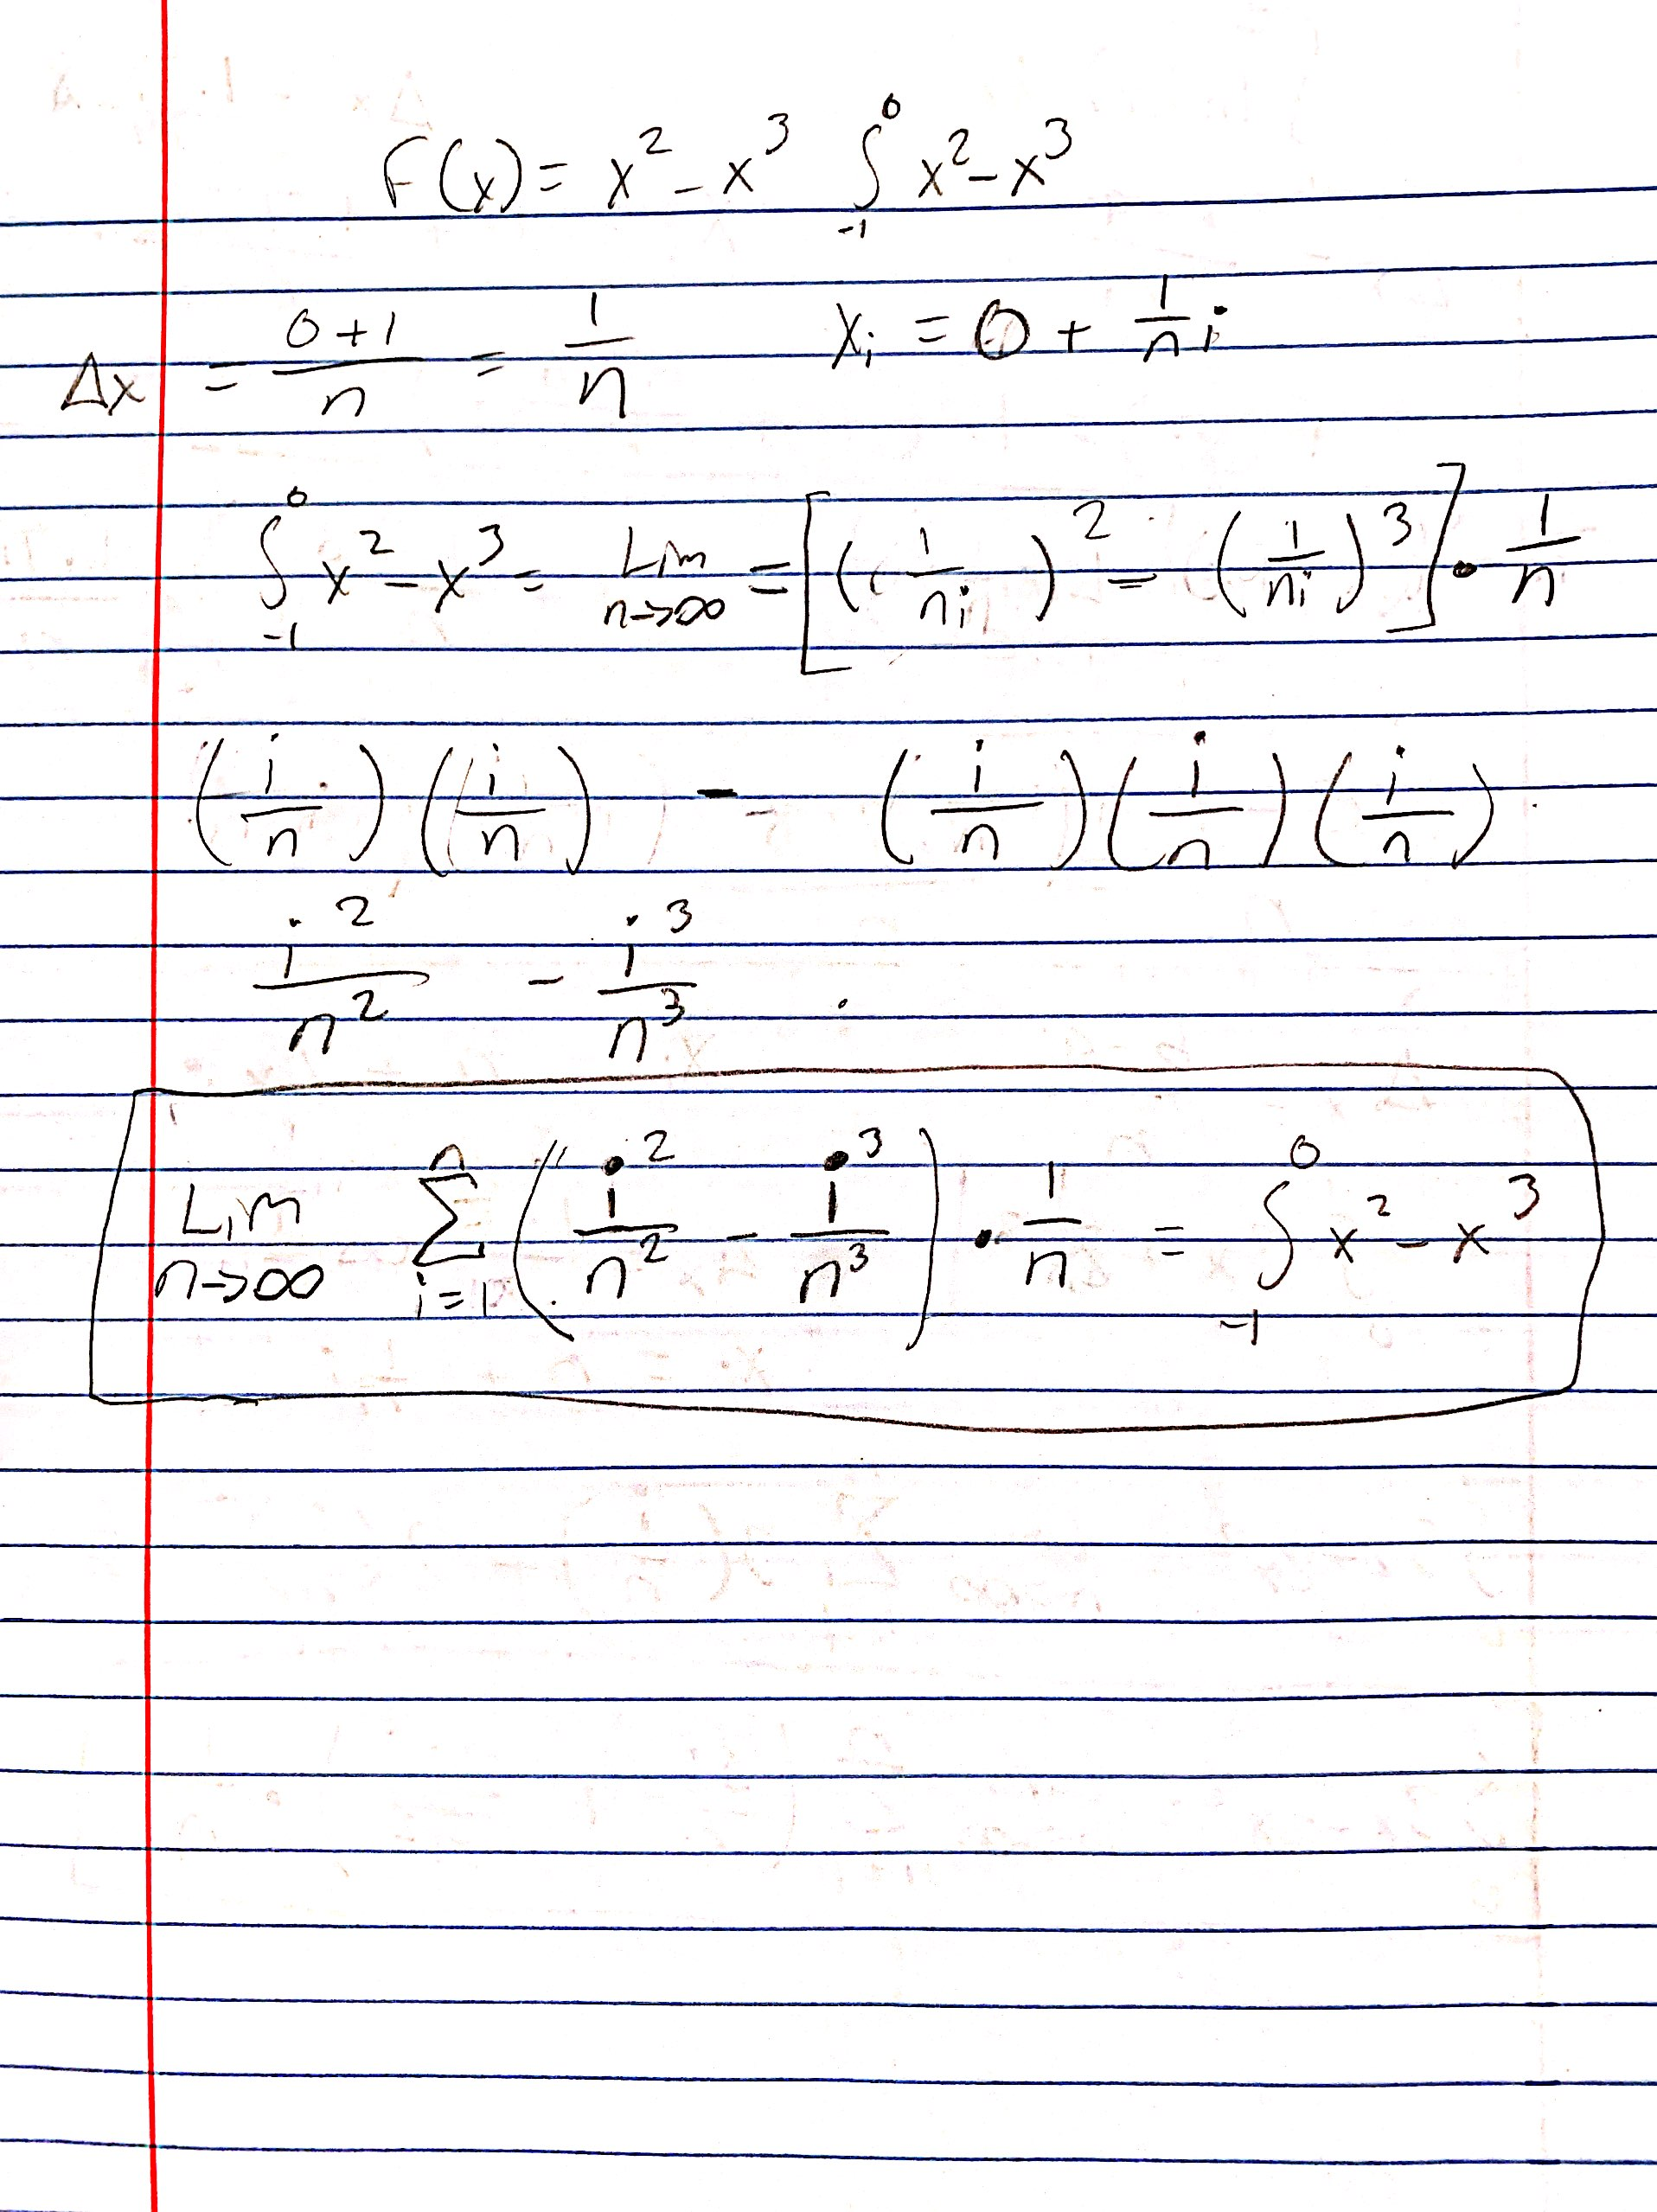 F(x) = x² - x³ ∫₋₁⁰ x² - x³
Δx = (0+1)/n = 1/n xᵢ = 0 + 1/n i
∫₋₁⁰ x² - x³ = Lim n→∞ = [(1/ni)² - (1/ni)³] · 1/n
(i/n)(i/n) - (i/n)(i/n)(i/n)
i²/n² - i³/n³
Lim n→∞ Σ i=1 n (i²/n² - i³/n³) · 1/n = ∫₋₁⁰ x² - x³